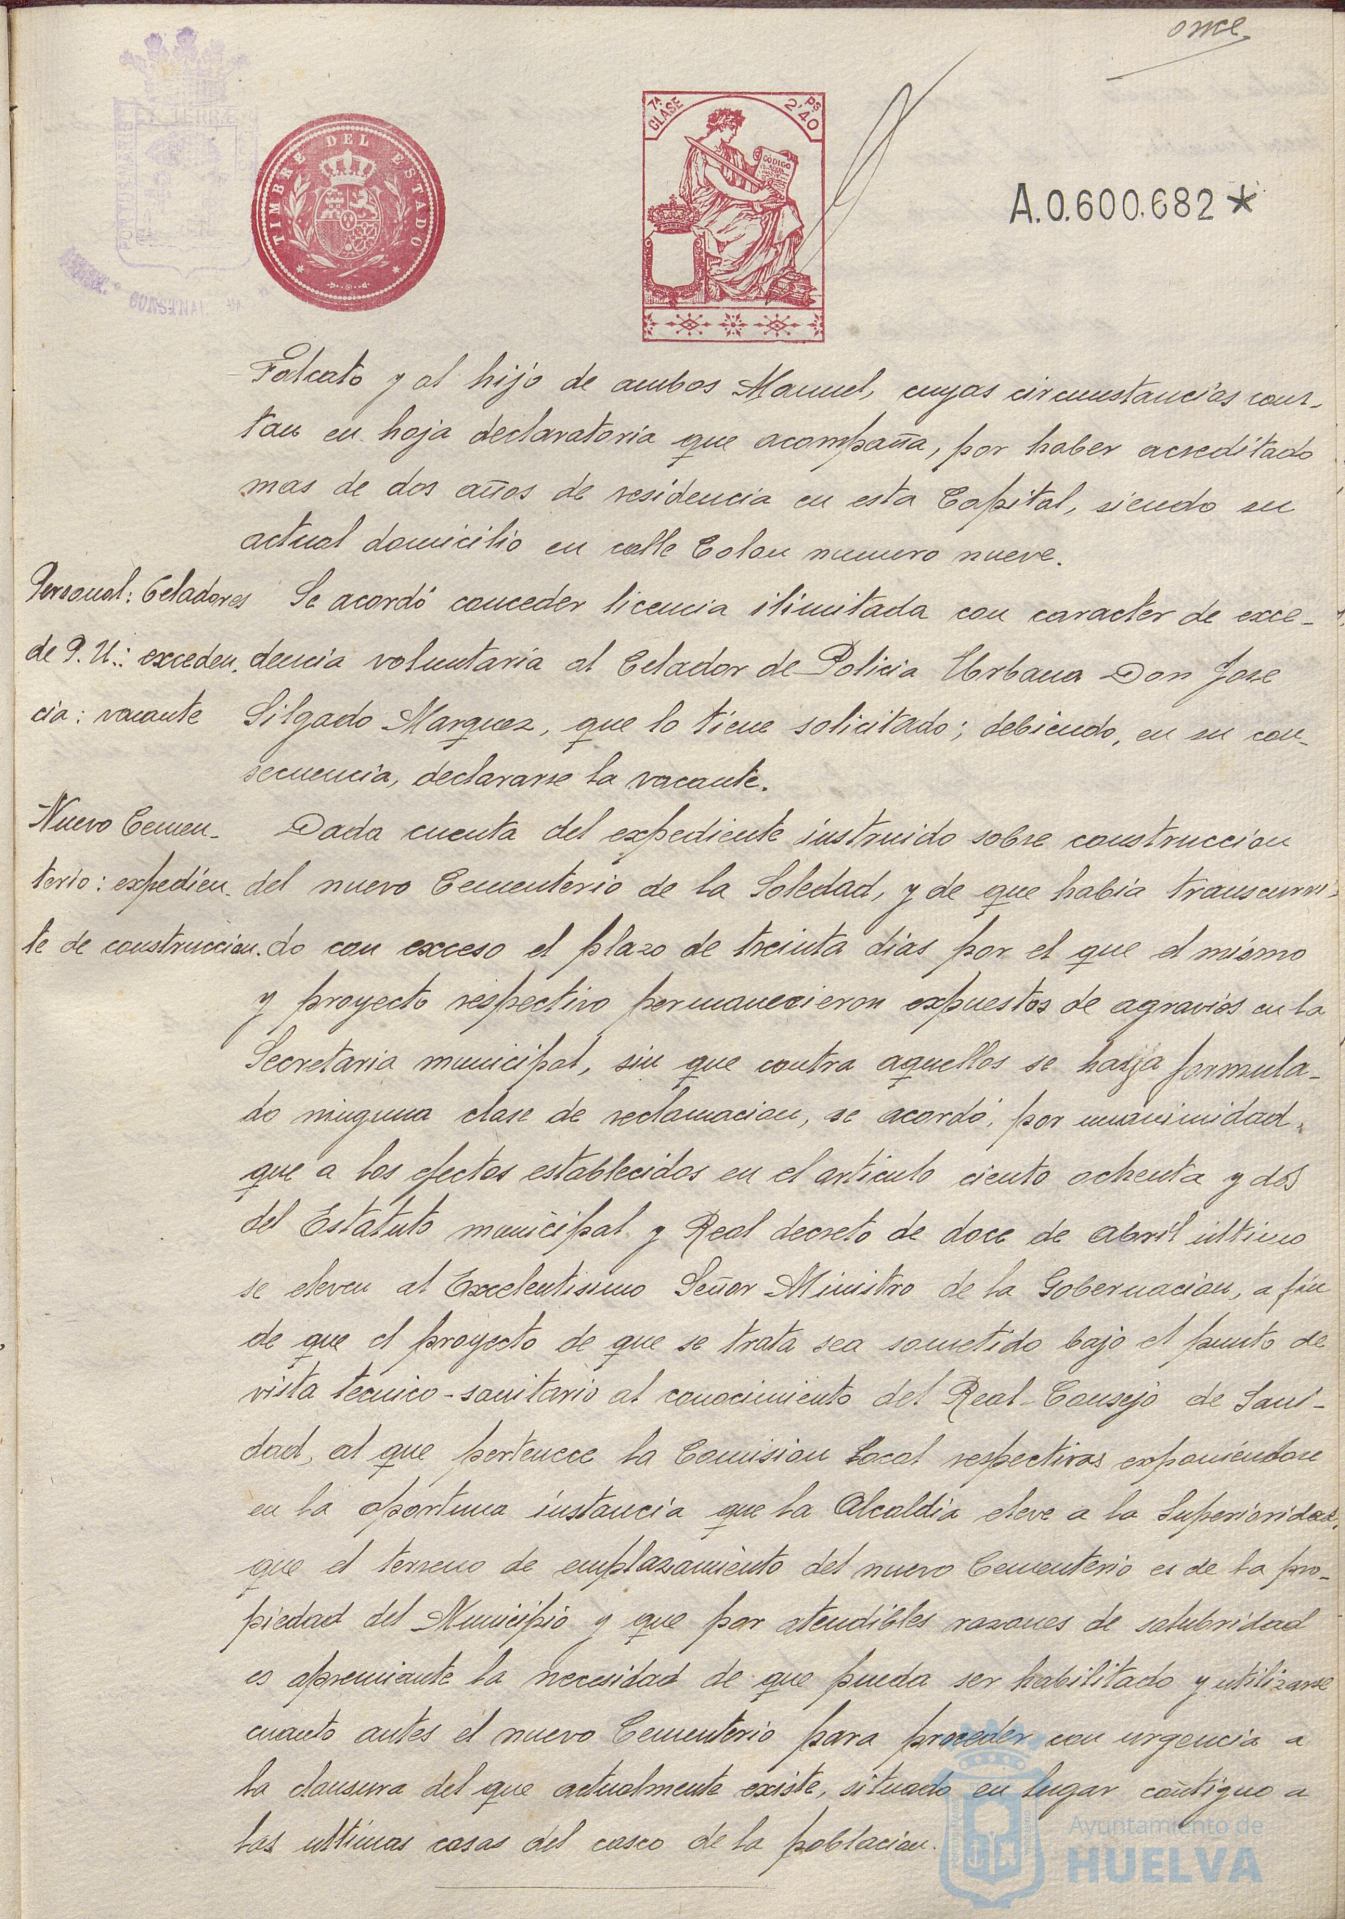 once
TIMBRE DEL ESTADO
7ª CLASE
Ps 2'40
CÓDIGO
A.0.600.682*
Falcato y al hijo de ambos Manuel, cuyas circunstancias cons-
tan en hoja declaratoria que acompaña, por haber acreditado
mas de dos años de residencia en esta Capital, siendo su
actual domicilio en calle Colon numero nueve.
Personal: Celadores
de P. U.: exceden-
cia: vacante
Se acordó conceder licencia ilimitada con caracter de exce-
dencia voluntaria al Celador de Policia Urbana Don Jose
Silgado Marquez, que lo tiene solicitado; debiendo, en su con-
secuencia, declararse la vacante.
Nuevo Cemen-
terio: expedien-
te de construccion.
Dada cuenta del expediente instruido sobre construccion
del nuevo Cementerio de la Soledad, y de que habia transcurri-
do con exceso el plazo de treinta dias por el que el mismo
y proyecto respectivo permanecieron expuestos de agravios en la
Secretaria municipal, sin que contra aquellos se haya formula-
do ninguna clase de reclamacion, se acordó, por unanimidad,
que a los efectos establecidos en el articulo ciento ochenta y dos
del Estatuto municipal y Real decreto de doce de abril ultimo
se eleven al Excelentisimo Señor Ministro de la Gobernacion, a fin
de que el proyecto de que se trata sea sometido bajo el punto de
vista tecnico-sanitario al conocimiento del Real Consejo de Sani-
dad, al que pertenece la Comision Local respectiva, exponiendose
en la oportuna instancia que la Alcaldia eleve a la Superioridad,
que el terreno de emplazamiento del nuevo Cementerio es de la pro-
piedad del Municipio y que por atendibles razones de salubridad
es apremiante la necesidad de que pueda ser habilitado y utilizarse
cuanto antes el nuevo Cementerio para proceder con urgencia a
la clausura del que actualmente existe, situado en lugar contiguo a
las ultimas casas del casco de la poblacion.
Ayuntamiento de
HUELVA